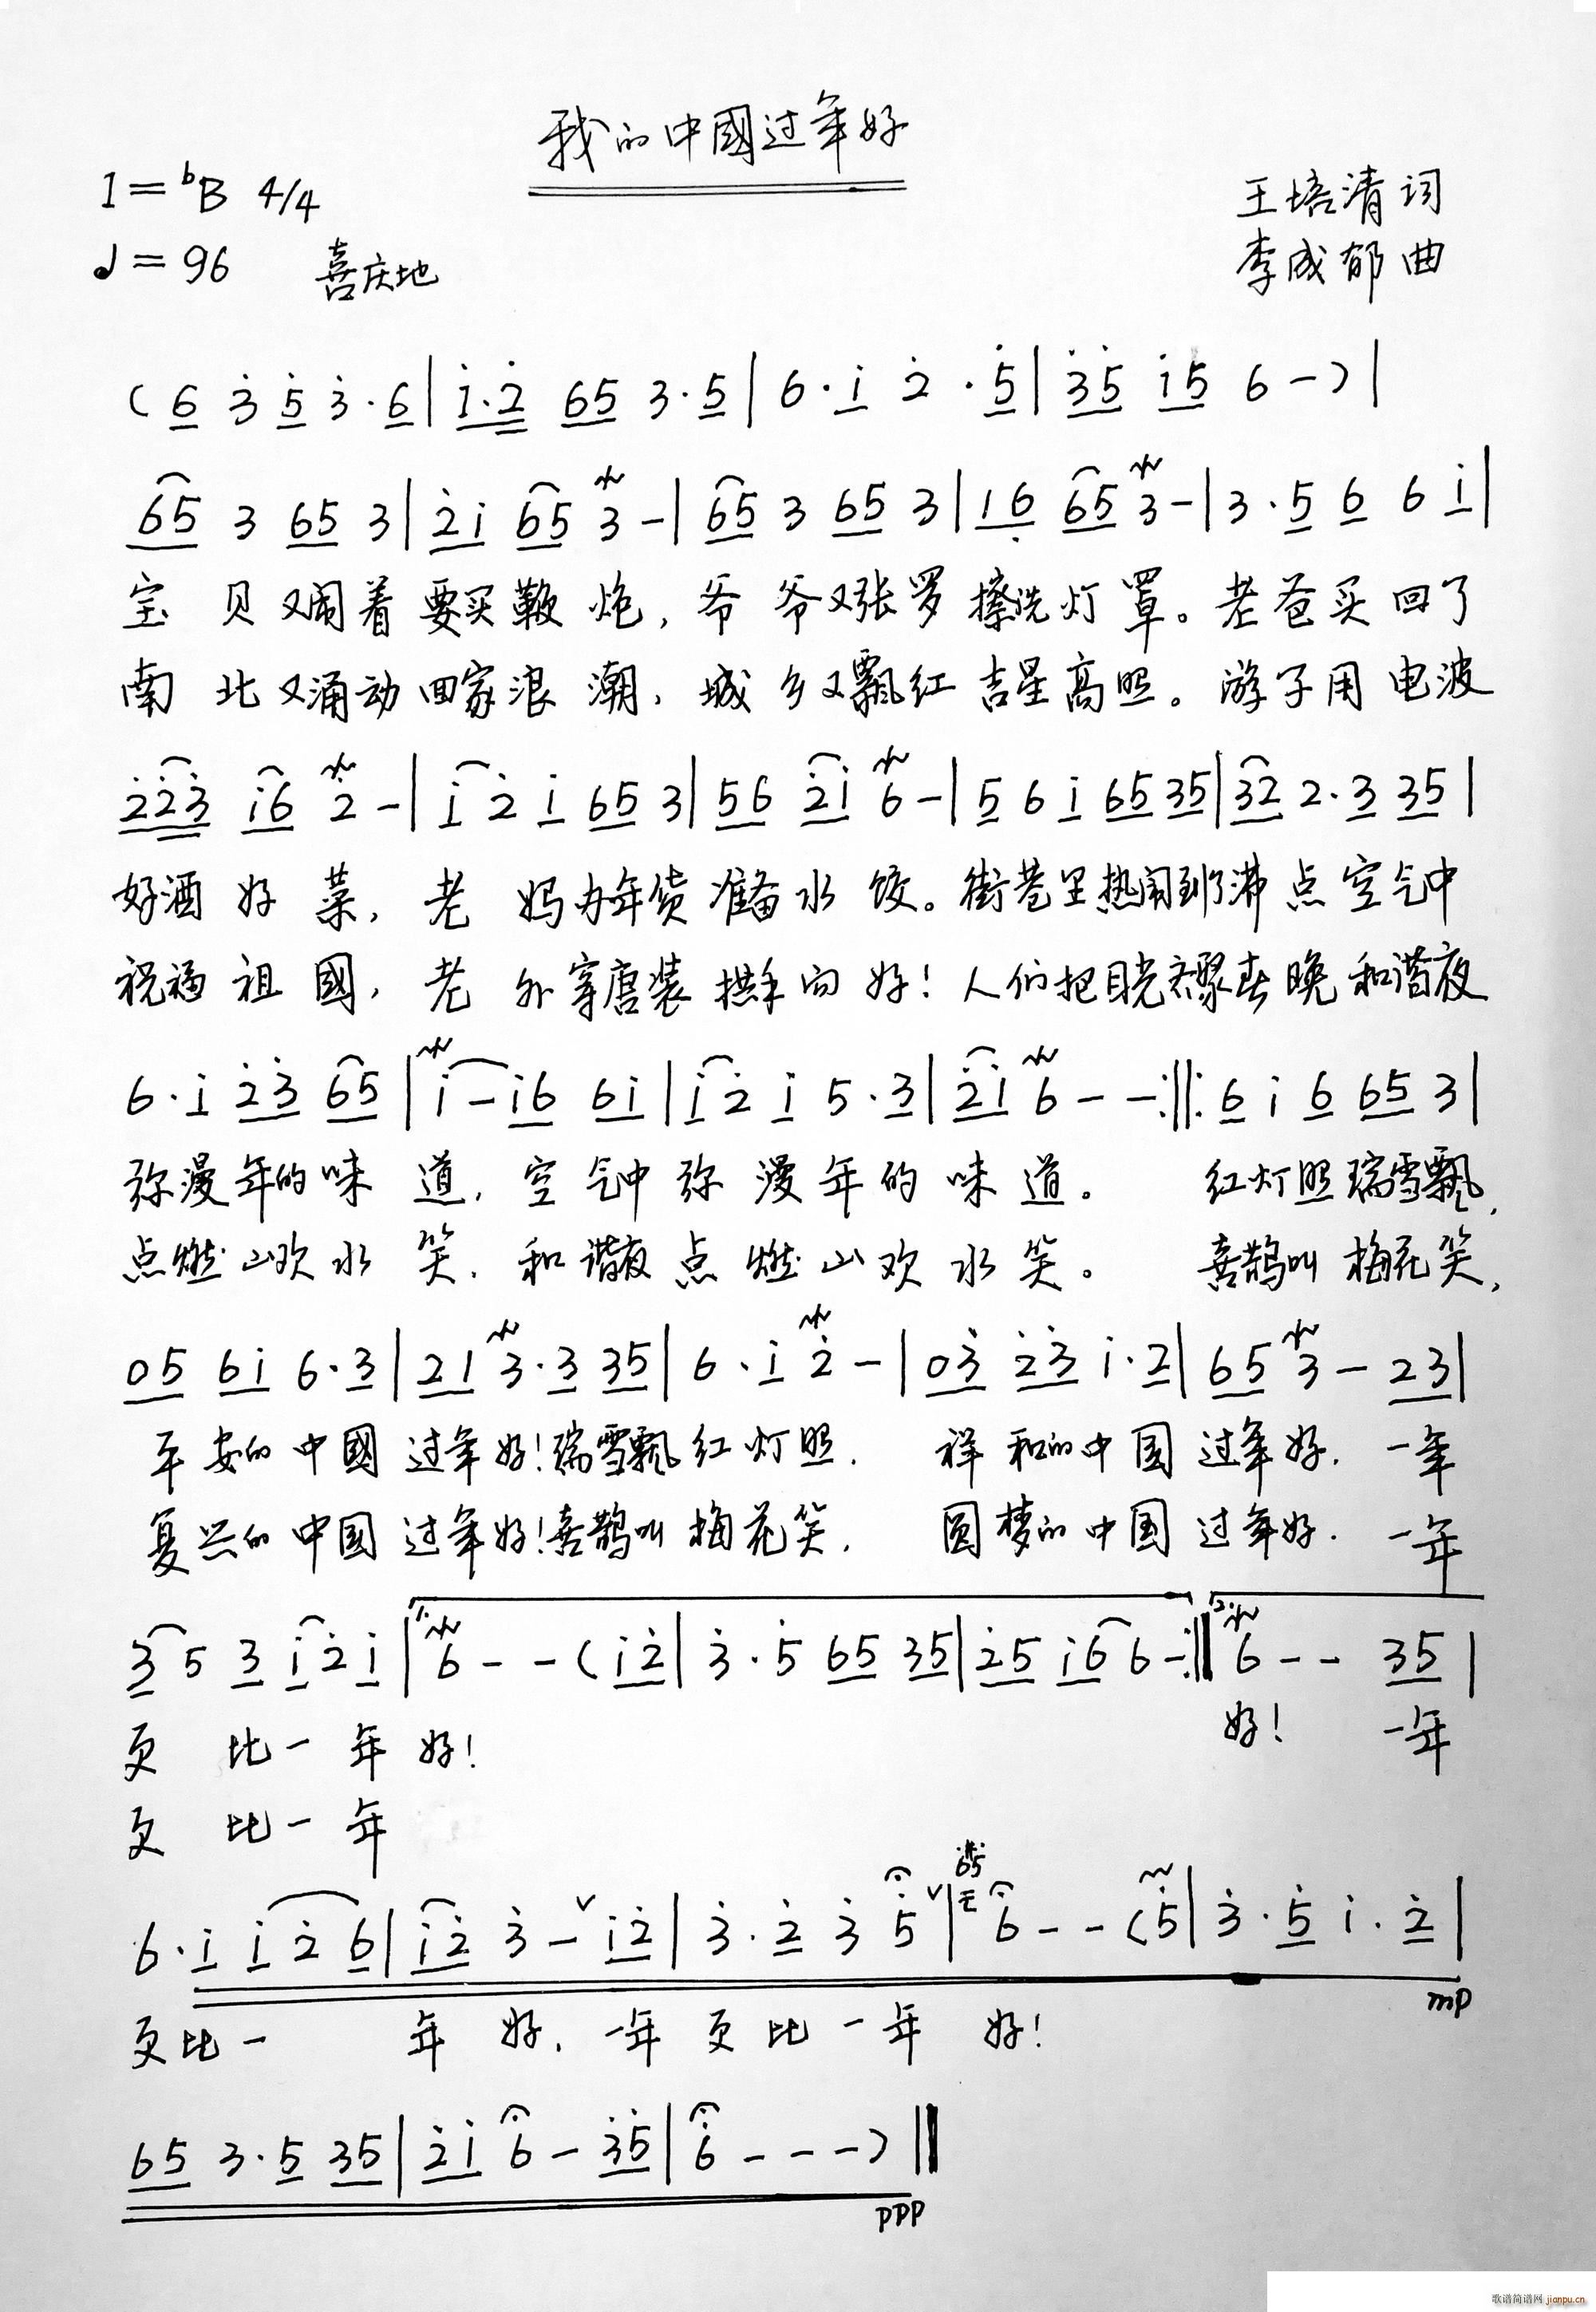 我的中國过年好
1=ᵇB 4/4
王培清 词
♩=96 喜庆地
李成郁 曲
(6 3̇ 5̇ 3̇·6|1̇·2̇ 65 3·5|6·1̇ 2̇·5̇|3̇5̇ 1̇5 6-)|
65 3 65 3|2̇1̇ 65 3-|65 3 65 3|16̣ 65 3-|3·5 6 6 1̇|
宝 贝又闹着 要买鞭 炮,爷 爷又张罗 擦洗灯 罩。老爸买 回了
南 北又涌动 回家浪 潮,城 乡又飘红 吉星高照。游子用 电波
2̇2̇3̇ 1̇6 2̇-|1̇ 2̇ 1̇ 65 3|56 2̇1̇ 6-|5 6 1̇ 65 35|32 2·3 35|
好酒 好 菜,老 妈办年货 准备水 饺。街巷里热闹到了沸 点 空气中
祝福 祖 國,老 外穿唐装 拱手向 好!人们把目光聚春 晚 和谐夜
6·1̇ 2̇3̇ 65|1̇-1̇6 61̇|1̇ 2̇ 1̇ 5·3|2̇1̇ 6--:‖:6 1̇ 6 65 3|
弥漫年的味 道,空气中 弥 漫年的 味道。 红灯照瑞雪飘,
点燃山欢水 笑,和谐夜 点 燃山欢 水笑。 喜鹊叫 梅花笑,
05 61̇ 6·3|21 3·3 35|6·1̇ 2̇-|03̇ 2̇3̇ 1̇·2|65 3-23|
平安的中國 过年好!瑞雪飘 红灯照, 祥和的中国 过年好,一年
复兴的中国 过年好!喜鹊叫 梅花笑, 圆梦的中国 过年好,一年
3 5 3 1̇ 2̇ 1̇|1.6--(1̇2̇|3̇·5̇ 65 35|2̇5 1̇6 6-:‖2.6-- 35|
更 比一 年 好! 好! 一年
更 比一 年
6·1̇ 1̇ 2̇ 6|1̇2̇ 3̇-ᵛ1̇2̇|3̇·2̇ 3̇ 5̇ᵛ|65 6--(5̇|3̇·5̇ 1̇·2̇|
mp
更比一 年 好,一年 更 比一年 好!
65 3·5 35|2̇1̇ 6-3̇5̇|6̇---)‖
ppp
歌谱简谱网 jianpu.cn